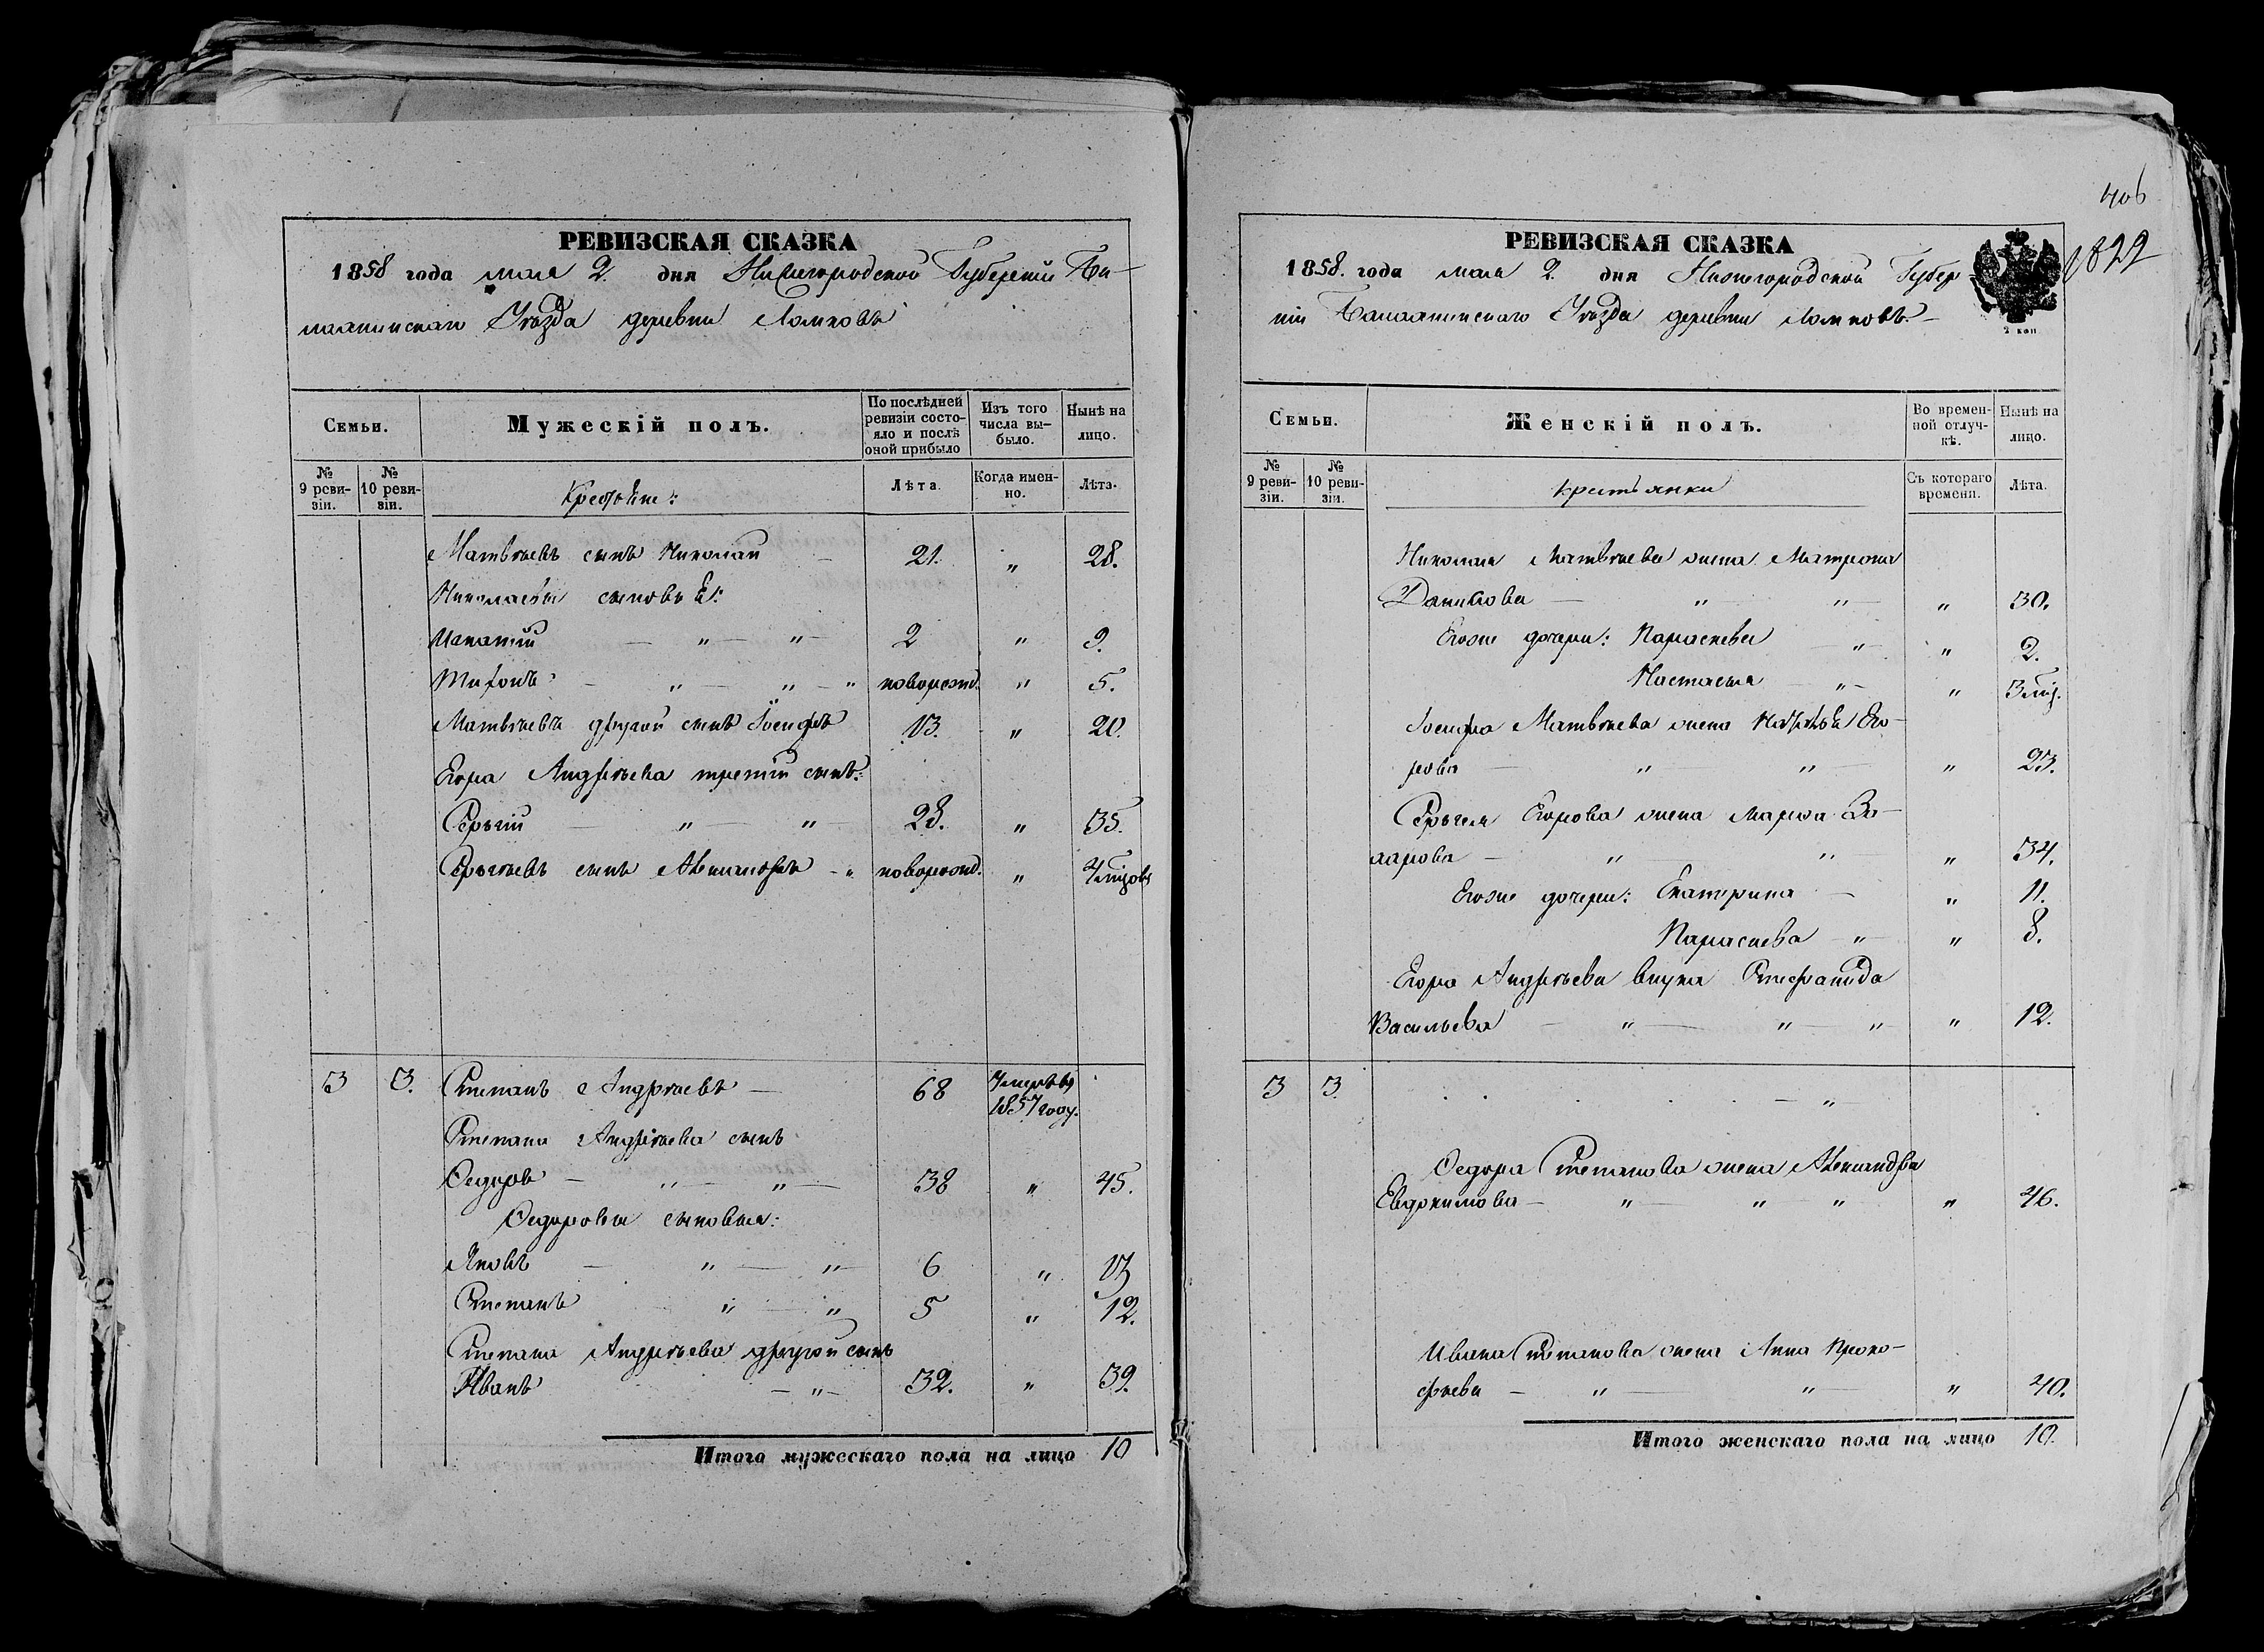 РЕВИЗСКАЯ СКАЗКА
1858 года мая 2 дня Нижегородской Губерніи Ба-
лахнинскаго Уѣзда деревни
Семьи.
Мужескій полъ.
По послѣдней ревизіи состо-яло и послѣ оной прибыло
Изъ того числа вы-было.
Нынѣ на лицо.
№ 9 реви-зіи.
№ 10 реви-зіи.
Крестьяне:
Лѣта.
Когда имен-но.
Лѣта.
Матвѣевъ сынъ Николай 21. " 28.
Николаевы сыновья:
Игнатій — " — " — 2 " 9.
— " — " — " новорожд. " 5.
Матвѣевъ другой сынъ Іосифъ 13. " 20.
Егора Андрѣева третій сынъ:
Сергѣй — " — " — 28. " 35.
Сергѣевъ сынъ Александръ — " новорожд. " 4 мѣсяцовъ
3 3. Степанъ Андрѣевъ — 68 Умеръ въ
1857 году.
Степана Андрѣева сынъ
Ѳедоръ — " — " — 38 " 45.
Ѳедоровы сыновья:
Яковъ — " — " — 6 " 13
Степанъ " — " 5 " 12.
Степана Андрѣева другой сынъ
Иванъ — " — 32. " 39.
Итого мужескаго пола на лицо 10
406
1822
РЕВИЗСКАЯ СКАЗКА
1858. года мая 2. дня Нижегородской Губер-
ніи Балахнинскаго Уѣзда деревни
2 коп
Семьи.
Женскій полъ.
Во времен-ной отлуч-кѣ.
Нынѣ на лицо.
№ 9 реви-зіи.
№ 10 реви-зіи.
Крестьянки
Съ котораго времени.
Лѣта.
Николая Матвѣева жена Матрона
Данилова — " — " — " 30.
Егоже дочери: Парасковья — " — " 2.
Настасья — " — " 3 мѣс.
Іосифа Матвѣева жена Наталья Его-
рова — " — " — " 23.
Сергѣя Егорова жена Марфа За-
харова — " " " 34.
Егоже дочери: Екатерина — " 11.
Параскева — " — " 8.
Егора Андрѣева внука Степанида
Васильева — " — " — " — " 12.
3 3. — " —
Ѳедора Степанова жена Александра
Евдокимова — " — " — " " 46.
Ивана Степанова жена Анна Проко-
фьева — " — " — " 40.
Итого женскаго пола на лицо 10.